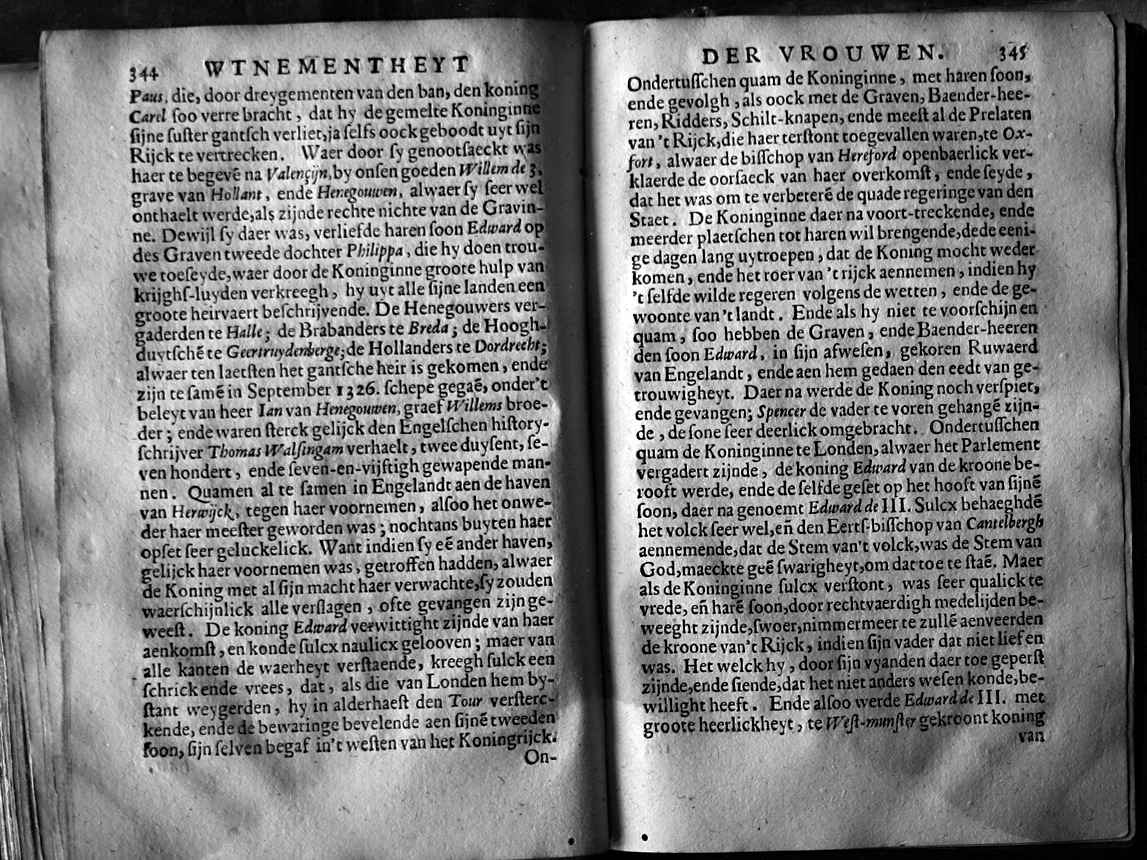 344 WTNEMENTHEYT
Paus, die, door dreygementen van den ban, den koning
Carel ſoo verre bracht, dat hy de gemelte Koninginne
ſijne ſuſter gantſch verliet, ja ſelfs oock geboodt uyt ſijn
Rijck te vertrecken. Waer door ſy genootſaeckt was
haer te begevē na Valençijn, by onſen goeden Willem de 3,
grave van Hollant, ende Henegouwen, alwaer ſy ſeer wel
onthaelt werde, als zijnde rechte nichte van de Gravin-
ne. Dewijl ſy daer was, verliefde haren ſoon Edward op
des Graven tweede dochter Philippa, die hy doen trou-
we toeſeyde, waer door de Koninginne groote hulp van
krijghſ-luyden verkreegh, hy uyt alle ſijne landen een
groote heirvaert beſchrijvende. De Henegouwers ver-
gaderden te Halle; de Brabanders te Breda; de Hoogh-
duytſchē te Geertruydenberge; de Hollanders te Dordrecht;
alwaer ten laetſten het gantſche heir is gekomen, ende
zijn te ſamē in September 1326. ſchepe gegaē, onder't
beleyt van heer Ian van Henegouwen, graef Willems broe-
der; ende waren ſterck gelijck den Engelſchen hiſtory-
ſchrijver Thomas Walſingam verhaelt, twee duyſent, ſe-
ven hondert, ende ſeven-en-vijftigh gewapende man-
nen. Quamen al te ſamen in Engelandt aen de haven
van Herwijck, tegen haer voornemen, alſoo het onwe-
der haer meeſter geworden was; nochtans buyten haer
opſet ſeer geluckelick. Want indien ſy eē ander haven,
gelijck haer voornemen was, getroffen hadden, alwaer
de Koning met al ſijn macht haer verwachte, ſy zouden
waerſchijnlick alle verſlagen, ofte gevangen zijn ge-
weeſt. De koning Edward verwittight zijnde van haer
aenkomſt, en konde ſulcx naulicx gelooven; maer van
alle kanten de waerheyt verſtaende, kreegh ſulck een
ſchrickende vrees, dat, als die van Londen hem by-
ſtant weygerden, hy in alderhaeſt den Tour verſterc-
kende, ende de bewaringe bevelende aen ſijnē tweeden
ſoon, ſijn ſelven begaf in't weſten van het Koningrijck.
On-
DER VROUWEN. 345
Ondertuſſchen quam de Koninginne, met haren ſoon,
ende gevolgh, als oock met de Graven, Baender-hee-
ren, Ridders, Schilt-knapen, ende meeſt al de Prelaten
van 't Rijck, die haer terſtont toegevallen waren, te Ox-
fort, alwaer de biſſchop van Hereford openbaerlick ver-
klaerde de oorſaeck van haer overkomſt, ende ſeyde,
dat het was om te verbeterē de quade regeringe van den
Staet. De Koninginne daer na voort-treckende, ende
meerder plaetſchen tot haren wil brengende, dede eeni-
ge dagen lang uytroepen, dat de Koning mocht weder
komen, ende het roer van 't rijck aennemen, indien hy
't ſelfde wilde regeren volgens de wetten, ende de ge-
woonte van 't landt. Ende als hy niet te voorſchijn en
quam, ſoo hebben de Graven, ende Baender-heeren
den ſoon Edward, in ſijn afweſen, gekoren Ruwaerd
van Engelandt, ende aen hem gedaen den eedt van ge-
trouwigheyt. Daer na werde de Koning noch verſpiet,
ende gevangen; Spencer de vader te voren gehangē zijn-
de, de ſone ſeer deerlick omgebracht. Ondertuſſchen
quam de Koninginne te Londen, alwaer het Parlement
vergadert zijnde, de koning Edward van de kroone be-
rooft werde, ende de ſelfde geſet op het hooft van ſijnē
ſoon, daer na genoemt Edward de III. Sulcx behaeghdē
het volck ſeer wel, eñ den Eertſ-biſſchop van Cantelbergh
aennemende, dat de Stem van't volck, was de Stem van
God, maeckte geē ſwarigheyt, om dat toe te ſtaē. Maer
als de Koninginne ſulcx verſtont, was ſeer qualick te
vrede, eñ harē ſoon, door rechtvaerdigh medelijden be-
weeght zijnde, ſwoer, nimmermeer te zullē aenveerden
de kroone van't Rijck, indien ſijn vader dat niet lief en
was. Het welck hy, door ſijn vyanden daer toe geperſt
zijnde, ende ſiende, dat het niet anders weſen konde, be-
willight heeft. Ende alſoo werde Edward de III. met
groote heerlickheyt, te Weſt-munſter gekroont koning
van